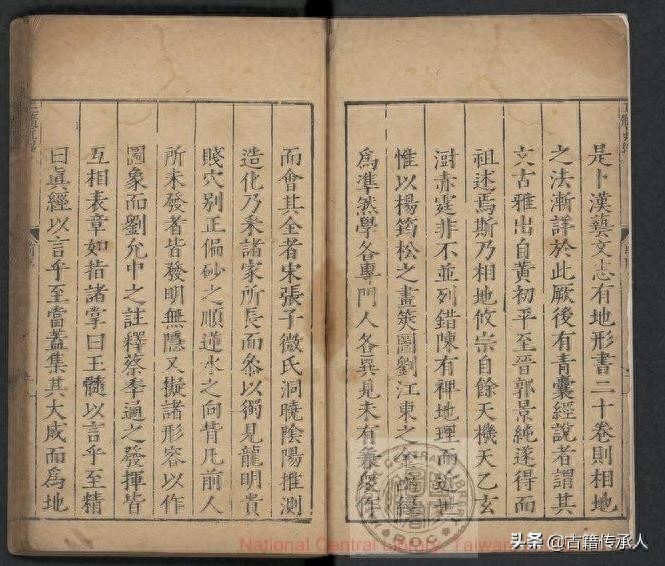 是卜漢藝文志有地形書二十卷則相地
之法漸詳於此厥後有青囊經說者謂其
文古雅出自黄初平至晉郭景純遂得而
祖述焉斯乃相地攸宗自餘天機天乙玄
厨赤霆非不並列錯陳有裨地理而近世
惟以楊筠松之畫筴圖劉江東之經
爲準然學各專門人各異見未有
而會其全者宋張子微氏洞曉陰陽推測
造化乃乘諸家所長而叅以獨見龍明貴
賤穴別正偏砂之順逆水之向背凡前人
所未發者皆發明無隱又擬諸形容以作
圖象而劉允中之註釋蔡季通之發揮皆
互相表章如指諸掌曰玉髓以言乎至精
曰眞經以言乎至當蓋集其大成而爲地
National Central Library, Taiwan
头条 @古籍传承人